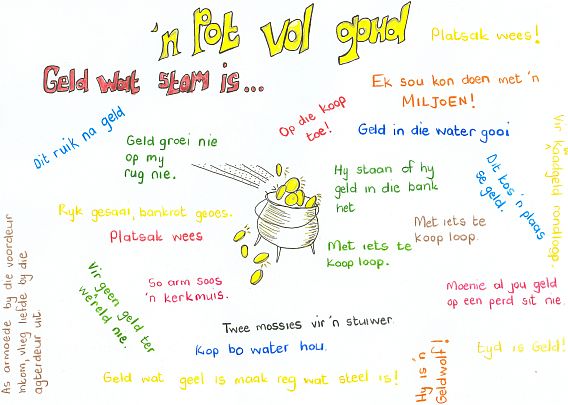 'n Pot vol goud
Platsak wees!
Geld wat stom is...
Ek sou kon doen met 'n
MILJOEN!
Dit ruik na geld
Op die koop
toe!
Geld in die water gooi
Vir kaalgeld rondloop.
Geld groei nie
op my
rug nie.
Hy staan of hy
geld in die bank
het
Dit kos 'n plaas
se geld.
Ryk gesaai, bankrot geoes.
Platsak wees
Met iets te
koop loop.
Met iets te
koop loop.
As armoede by die voordeur
inkom, vlieg liefde by die
agterdeur uit
Vir geen geld ter
wêreld nie.
So arm soos
'n kerkmuis.
Moenie al jou geld
op een perd sit nie.
Twee mossies vir 'n stuiwer
Kop bo water hou.
Hy is 'n
Geldwolf!
tyd is Geld!
Geld wat geel is maak reg wat steel is!